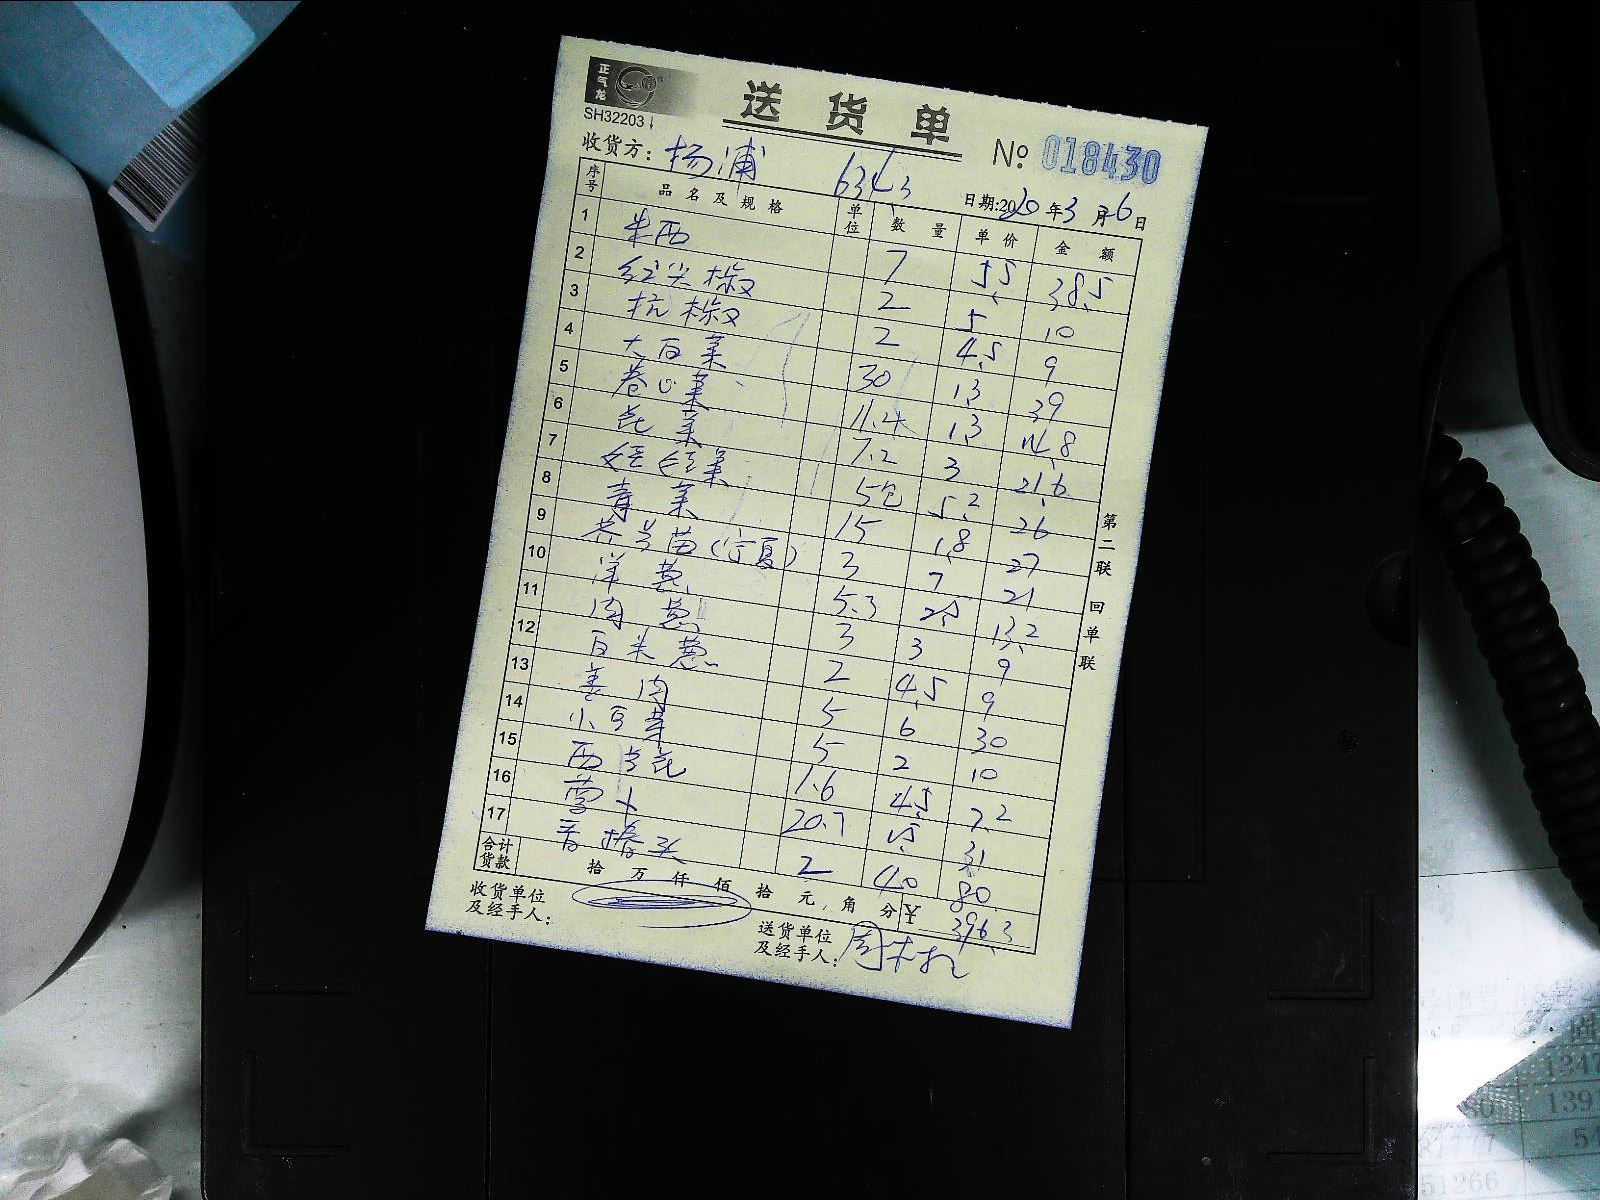 正气龙
SH32203
送货单
№ 018430
收货方: 杨浦
日期:2020年3月6日
序号 品名及规格 单位 数量 单价 金额
1 牛西 7 5.5 38.5
2 红尖椒 2 5 10
3 杭椒 2 4.5 9
4 大白菜 30 1.3 39
5 卷心菜 11.4 1.3 14.8
6 花菜 7.2 3 21.6
7 娃娃菜 5包 5.2 26
8 青菜 15 1.8 27
9 (宁夏) 3 7 21
10 洋葱 5.3 2.5 13.2
11 肉葱 3 3 9
12 白米葱 2 4.5 9
13 姜肉 5 6 30
14 小豆芽 5 2 10
15 西兰花 1.6 4.5 7.2
16 20.7 1.5 31
17 香椿头 2 40 80
合计货款 拾 万 仟 佰 拾 元 角 分 ¥ 396.3
收货单位及经手人:
送货单位及经手人:
第二联 回单联
1347
51266